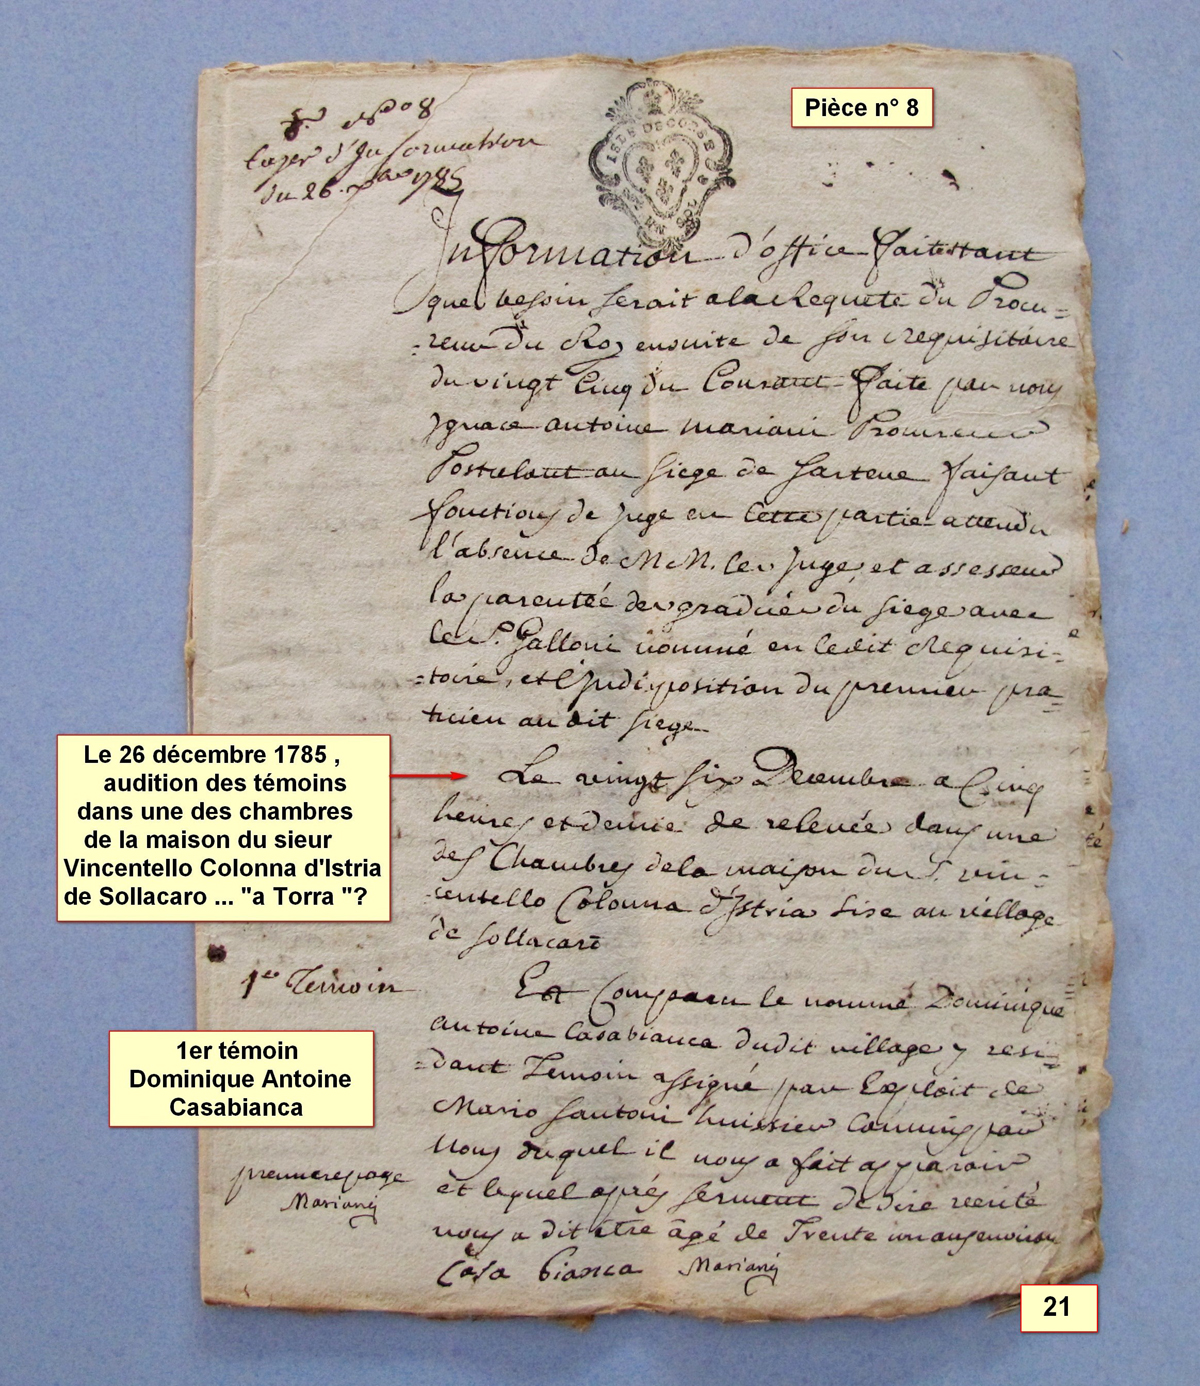 Pièce n° 8
N° 8
Cayer d'Information
du 26. Xbre 1785
ISLE DE CORSE
Information d'office faite tant
que besoin serait a la Requete du Procu=
=reur du Roy ensuite de son requisitoire
du vingt Cinq du Courant faite par nous
Ignace antoine mariani Procureur
Postulant au siege de sartene faisant
fonctions de juge en Cette partie attendu
l'absence de M M. les Juge, et assesseur
la parenteé des graduées du siege avec
le S. Galloni nommé en ledit Requisi=
=toire, et l'judisposition du premier pra=
ticien au dit siege
Le 26 décembre 1785 ,
audition des témoins
dans une des chambres
de la maison du sieur
Vincentello Colonna d'Istria
de Sollacaro ... "a Torra "?
Le vingt six Decembre a Cinq
heures et demie de relevée dans une
des Chambres de la maison du S. vin=
centello Colonna d'Istria sise au village
de sollacaro
1er Temoin
Est Comparu le nommé Dominique
antoine Casabianca dudit village y resi=
=dant Temoin assigné par Exploit de
Mario santoni huissier Commis par
Nous duquel il nous a fait apparoir
et lequel aprés serment de dire verité
nous a dit etre agé de Trente un ans environ
1er témoin
Dominique Antoine
Casabianca
premiere page
Mariani
Casa bianca Mariani
21